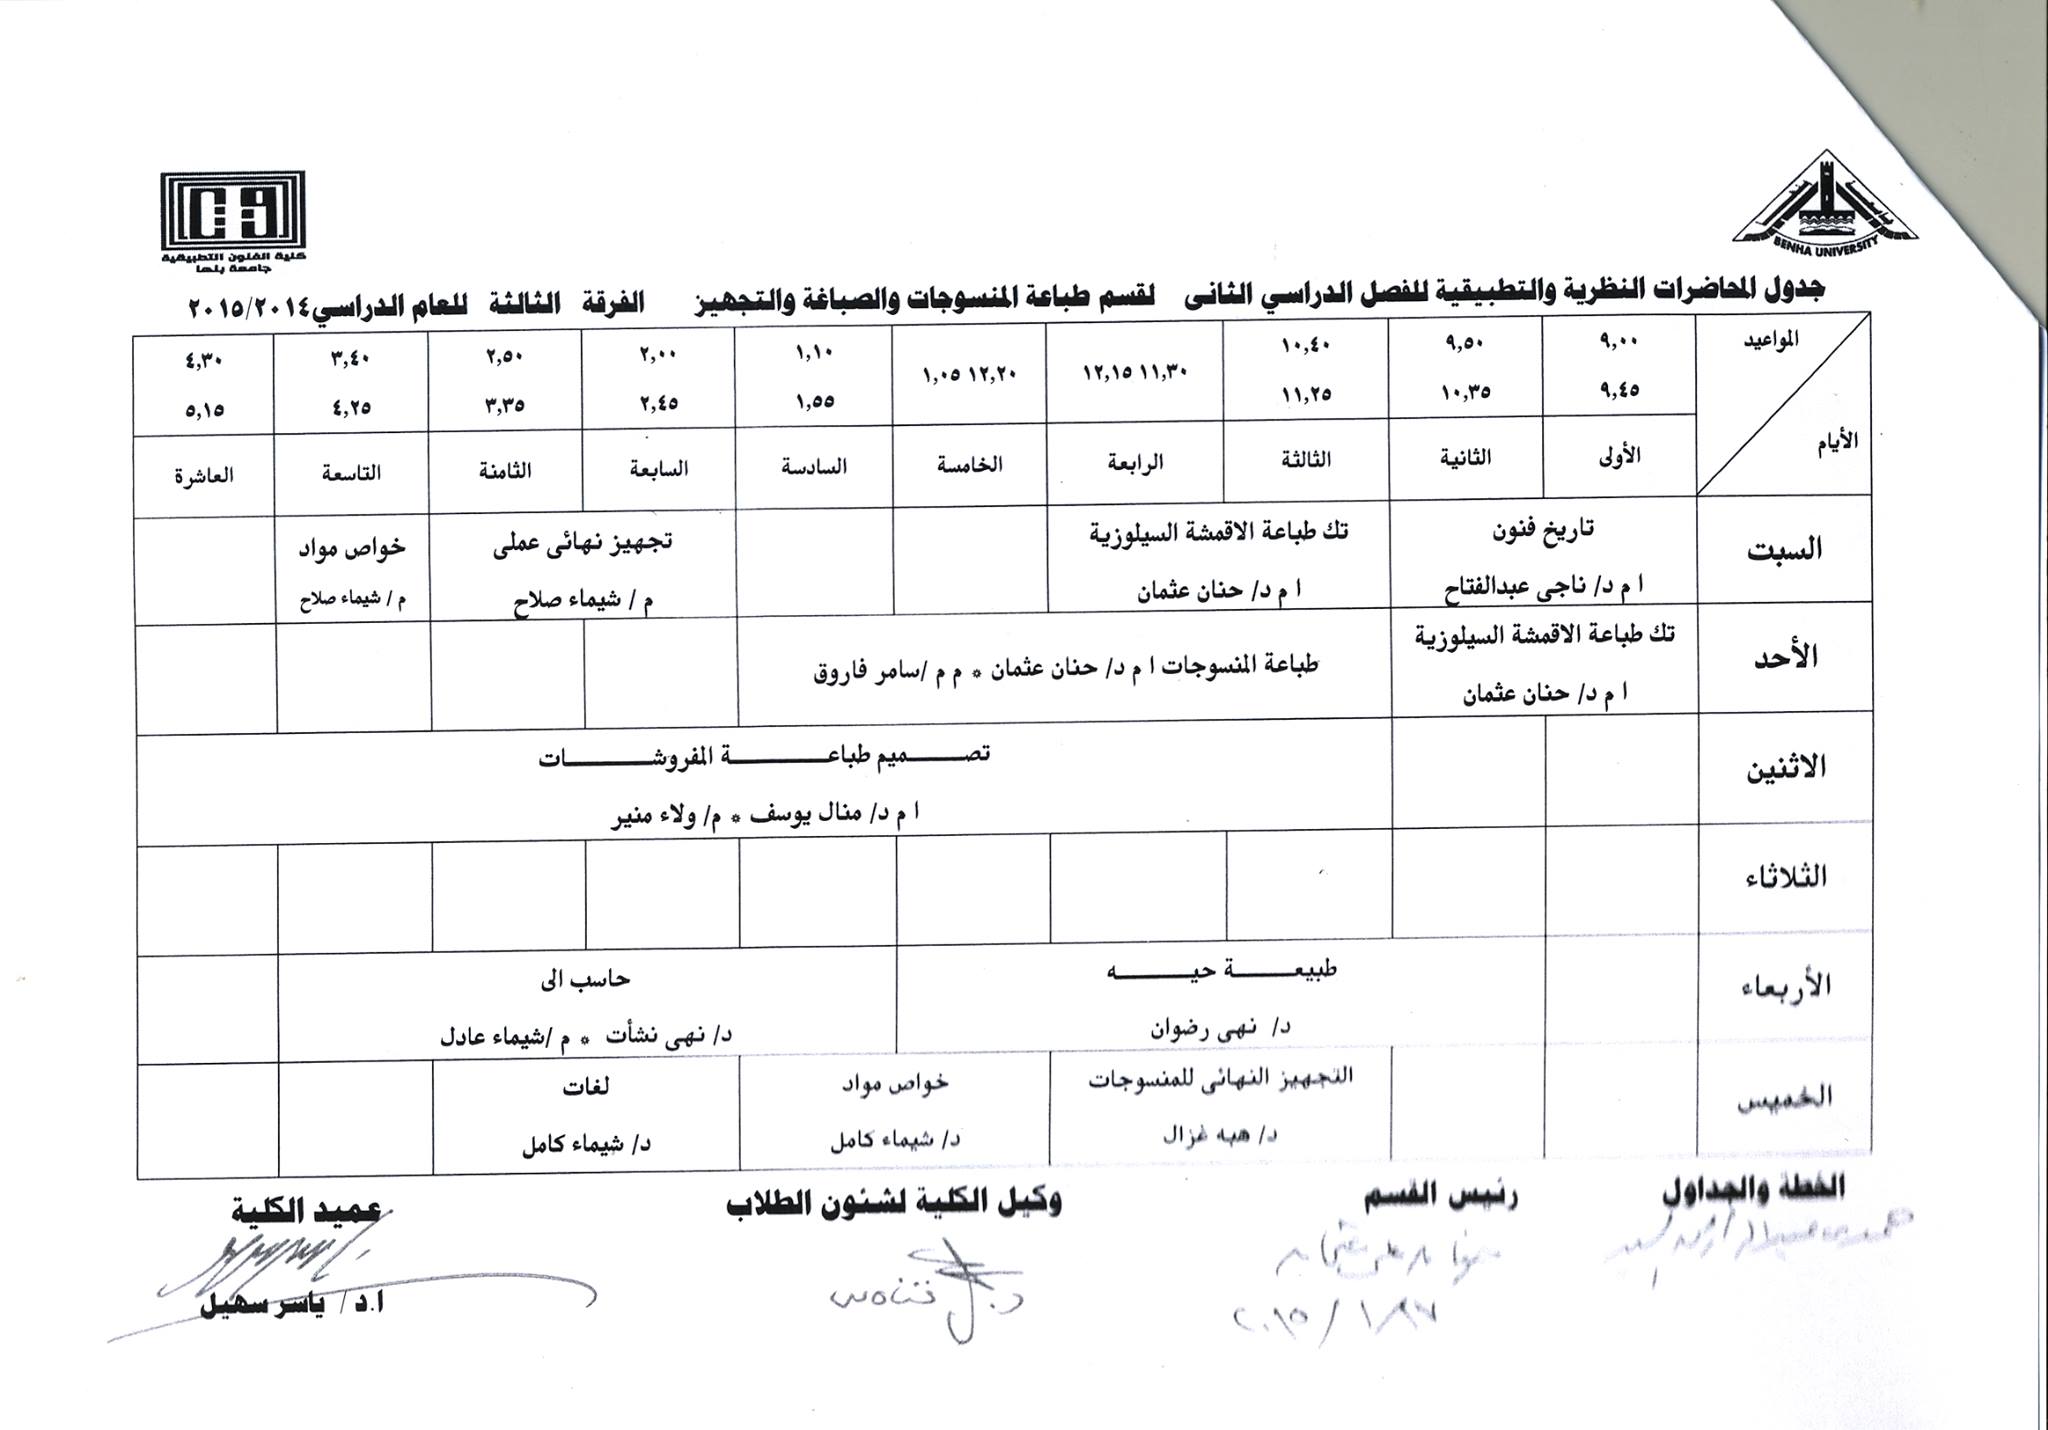 كلية الفنون التطبيقية
جامعة بنها
BENHA UNIVERSITY
جدول المحاضرات النظرية والتطبيقية للفصل الدراسي الثانى لقسم طباعة المنسوجات والصباغة والتجهيز الفرقة الثالثة للعام الدراسي ٢٠١٥/٢٠١٤
المواعيد
الأيام
٩,٠٠ ٩,٥٠ ١٠,٤٠ ١١,٣٠ ١٢,١٥ ١٢,٢٠ ١,٠٥ ١,١٠ ٢,٠٠ ٢,٥٠ ٣,٤٠ ٤,٣٠
٩,٤٥ ١٠,٣٥ ١١,٢٥ ١,٥٥ ٢,٤٥ ٣,٣٥ ٤,٢٥ ٥,١٥
الأولى الثانية الثالثة الرابعة الخامسة السادسة السابعة الثامنة التاسعة العاشرة
السبت
تاريخ فنون
ا م د/ ناجى عبدالفتاح
تك طباعة الاقمشة السيلوزية
ا م د/ حنان عثمان
تجهيز نهائى عملى
م / شيماء صلاح
خواص مواد
م / شيماء صلاح
الأحد
تك طباعة الاقمشة السيلوزية
ا م د/ حنان عثمان
طباعة المنسوجات ا م د/ حنان عثمان * م م /سامر فاروق
الاثنين
تصـــميم طباعـــــــة المفروشــــــات
ا م د/ منال يوسف * م/ ولاء منير
الثلاثاء
الأربعاء
طبيعـــــة حيـــــه
د/ نهى رضوان
حاسب الى
د/ نهى نشأت * م /شيماء عادل
الخميس
التجهيز النهائى للمنسوجات
د/ هبه غزال
خواص مواد
د/ شيماء كامل
لغات
د/ شيماء كامل
الخطة والجداول رئيس القسم وكيل الكلية لشئون الطلاب عميد الكلية
ا.د / ياسر سهيل